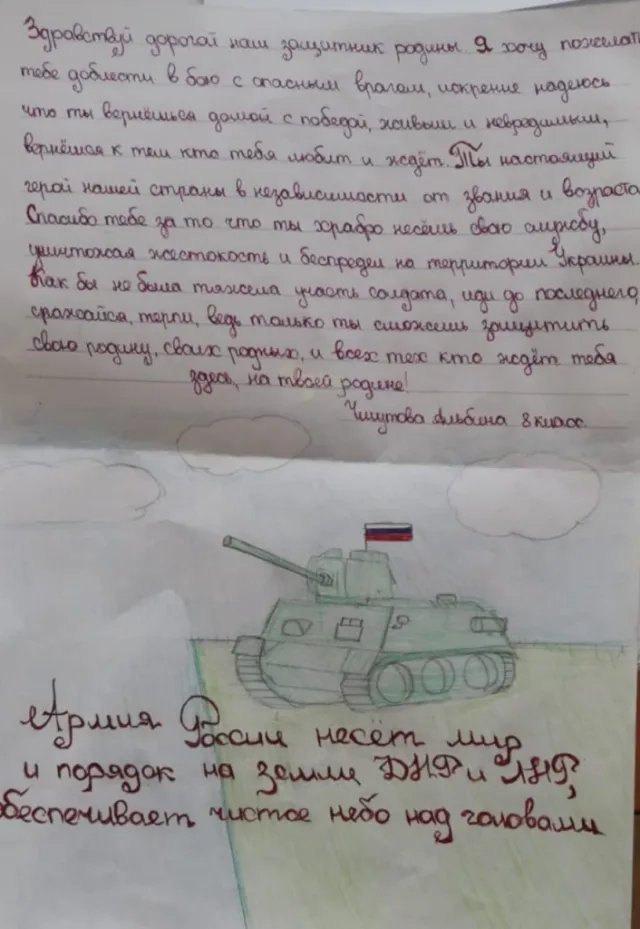 Здравствуй дорогой наш защитник родины. Я хочу пожелать
тебе доблести в бою с опасным врагом, искренне надеюсь
что ты вернёшься домой с победой, живым и невредимым,
вернёшся к тем кто тебя любит и ждёт. Ты настоящий
герой нашей страны в независимости от звания и возраста
Спасибо тебе за то что ты храбро несёшь свою службу,
уничтожая жестокость и беспредел на территории Украины.
Как бы не была тяжела участь солдата, иди до последнего,
сражайся, терпи, ведь только ты сможешь защитить
свою родину, своих родных, и всех тех кто ждёт тебя
здесь, на твоей родине!
Альбина 8 класс.
Армия России несёт мир
и порядок на земли ДНР и ЛНР,
обеспечивает чистое небо над головами